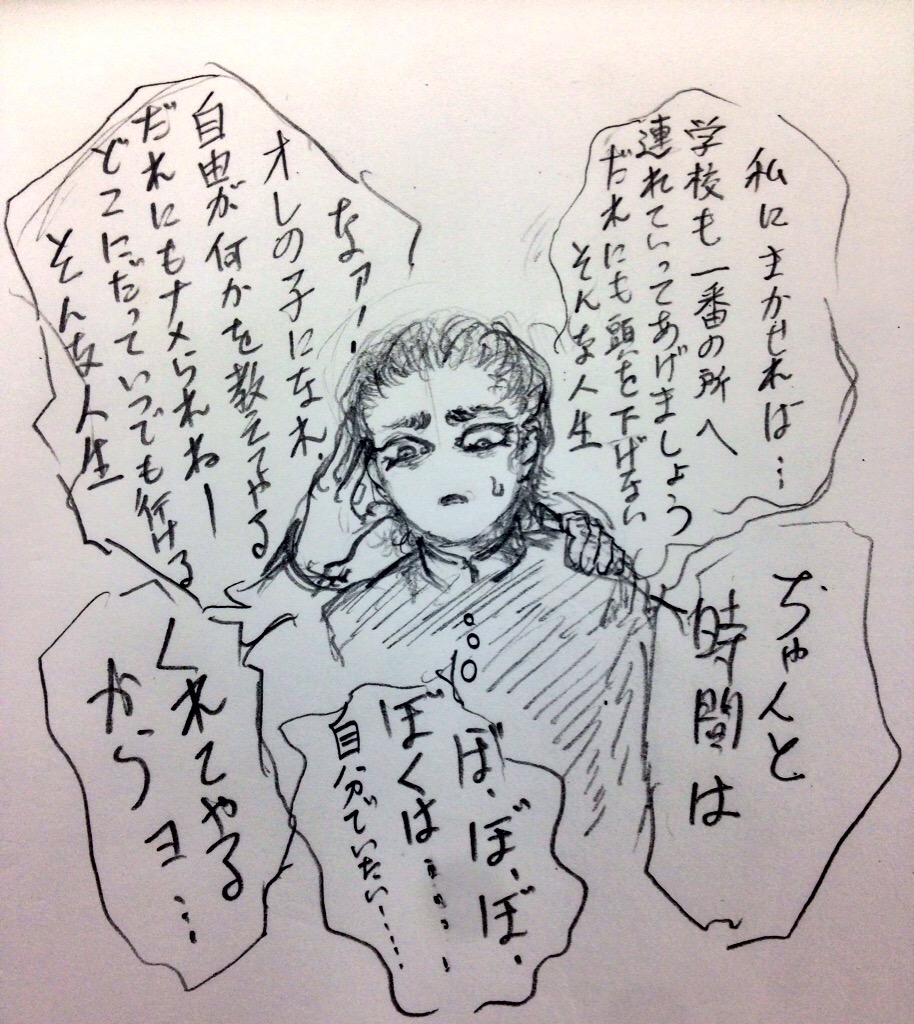 私にまかせれば…
学校も一番の所へ
連れていってあげましょう
だれにも頭を下げない
そんな人生
なァ!
オレの子になれ
自由が何かを教えてやる
だれにもナメられねー
どこにだっていつでも行ける
そんな人生
ちゃんと
時間は
くれてやる
からョ…
ぼ、ぼ、ぼ、
ぼくは……
自分でいたい……